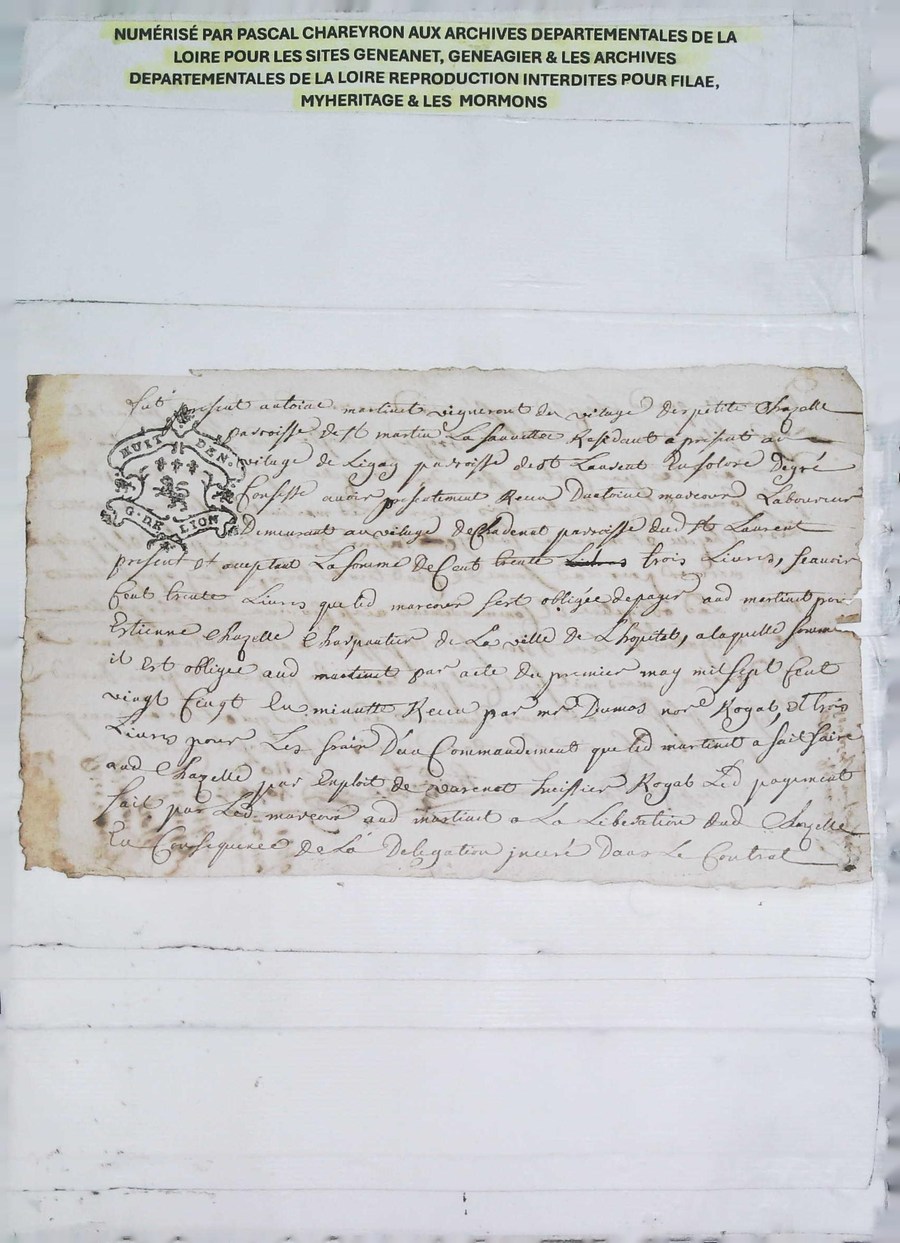 NUMÉRISÉ PAR PASCAL CHAREYRON AUX ARCHIVES DEPARTEMENTALES DE LA
LOIRE POUR LES SITES GENEANET, GENEAGIER & LES ARCHIVES
DEPARTEMENTALES DE LA LOIRE REPRODUCTION INTERDITES POUR FILAE,
MYHERITAGE & LES MORMONS
HUIT DEN.
G. DE LION
fut present antoine martinet vigneront du village des petite Chazelle
parroisse de st martin La sauvetter Residant a présent au
vilage de Ligay parroisse de st Laurent En solore Degré
Confesse avoir présentement Receu Dantoine marcoux Laboureur
Demeurant au vilage de Chadenat parroisse dud st Laurent
present et aceptant La somme de Cent trente trois Livres, scavoir
Cent trente Livres que led marcoux sest obligée de payer aud martinet pour
Estienne Chazelle Charpantier de La ville de Lhopital, a laquelle somme
il Est obligée aud martinet par acte du premier may mil sept Cent
vingt Cinqt En minutte Receu par mr Dumas nore Royal, et trois
Livres pour Les frais D'un Commandement que led martinet a fait faire
aud Chazelle par Exploit de varenat huissier Royal Led payement
fait par Led marcoux aud martinet a La Liberation dud Chazelle
En Consequence de La Delegation jnseré Dans Le Contrat